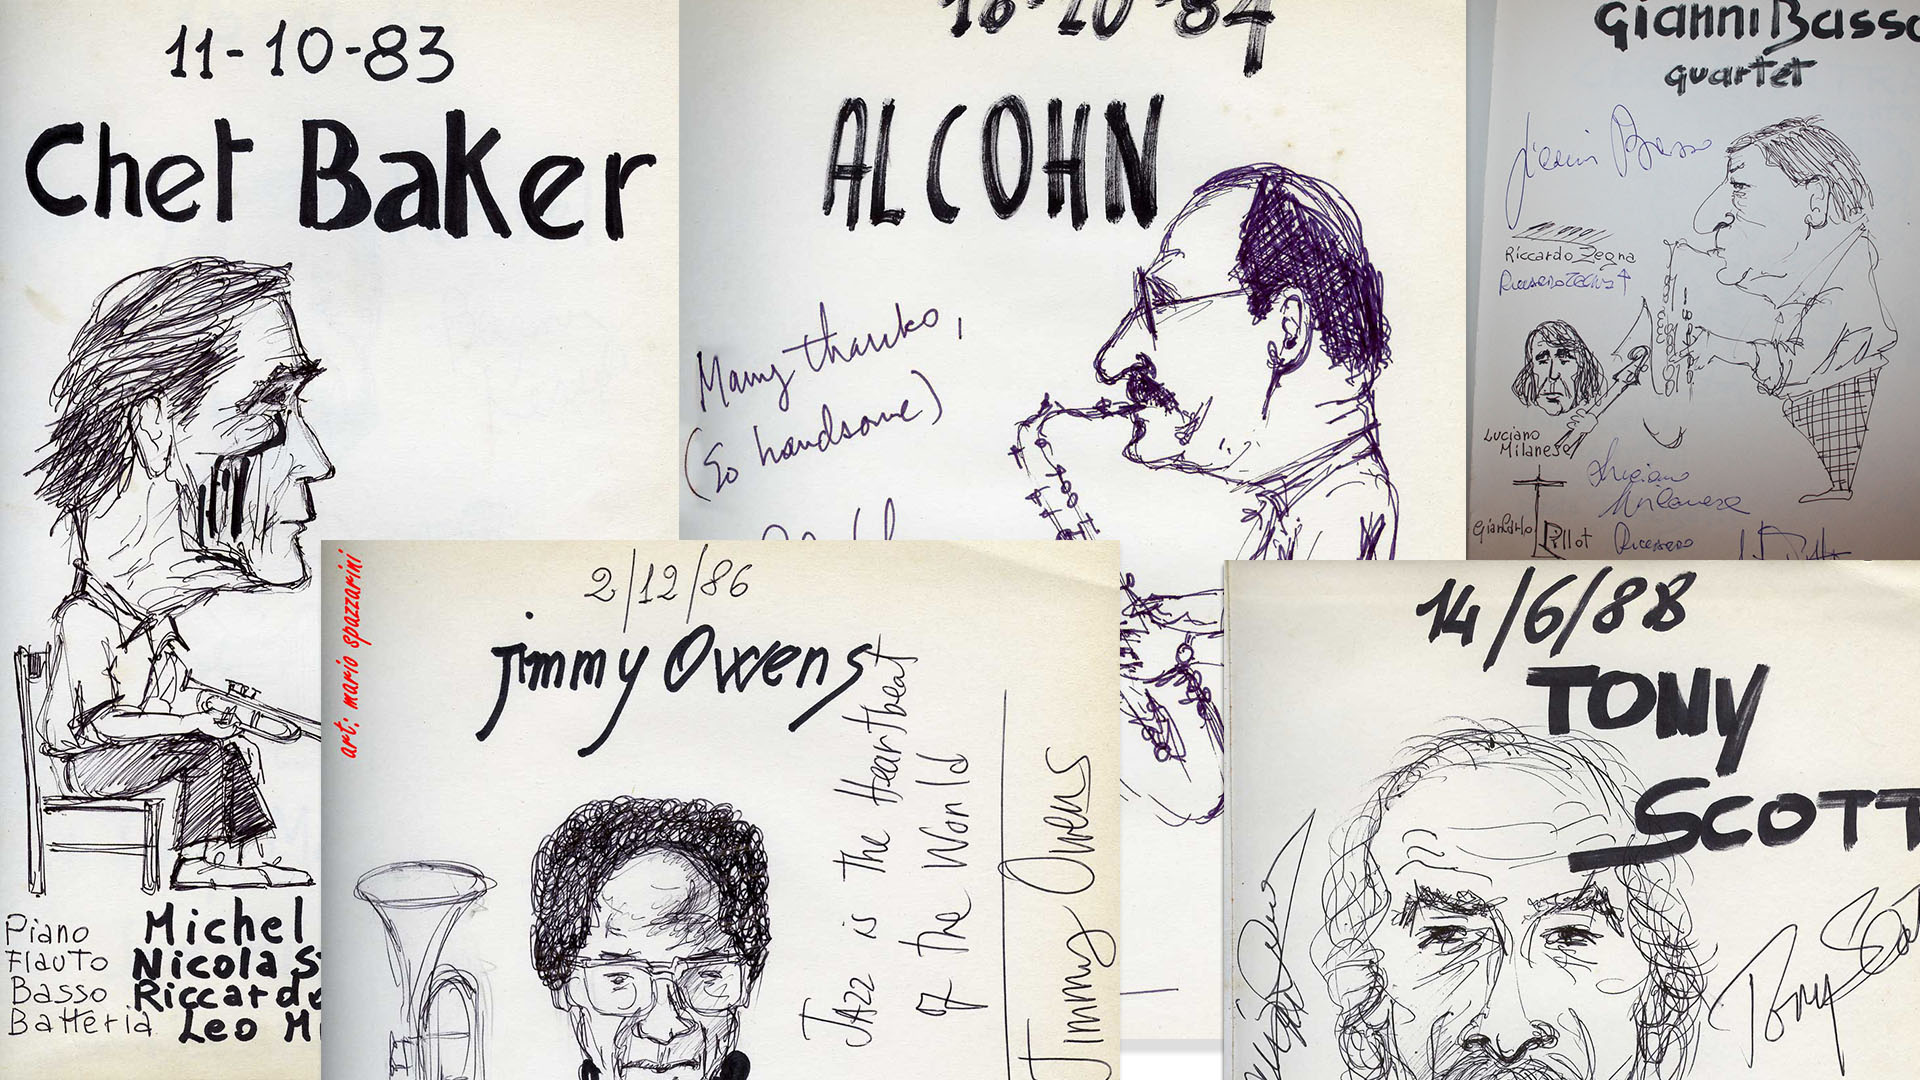 11-10-83
Chet Baker
Piano Michel
Flauto Nicola
Basso Riccardo
Batteria Leo
18-10-84
AL COHN
Many thanks,
(So handsome)
Gianni Basso
quartet
Gianni Basso
Riccardo Zegna
Riccardo Zegna
Luciano
Milanese
Luciano
Milanese
Giancarlo Pillot
art: mario spazzarini
2/12/86
Jimmy Owens
Jazz is The Heartbeat
of The World
Jimmy Owens
14/6/88
TONY
SCOTT
Tony Scott